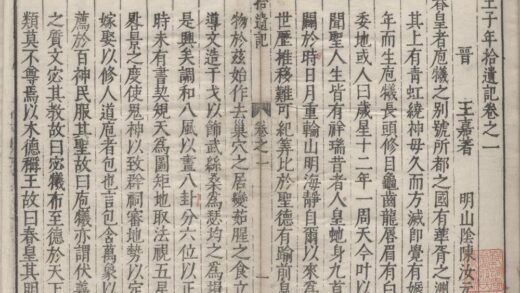 王子年拾遺記卷之一
晉 王嘉著 明山陰陳汝元
春皇者庖犧之別號所都之國有華胥之洲
其上有青虹繞神母久而方滅即覺有娠
年而生庖犧長頭修目龜齒龍唇眉有白
委地或人曰歲星十二年一周天今叶以
聞聖人生皆有祥瑞昔者人皇蛇身九首
關於時日月重輪山明海靜自爾以來爲
世歷推移難可紀筭比於聖德有踰前皇
拾遺記 卷之一 一
物於茲始作去巢穴之居變茹腥之食立
導文造干戈以飾武絲桑爲瑟均土爲塤
是興矣調和八風以畫八卦分六位以正
時未有書契規天爲圖矩地取法視五星
晷景之度使鬼神以致群祠審地勢以定
嫁娶以修人道庖者包也言包含萬象以
薦於百神民服其聖故曰庖犧亦謂伏羲
之質文宓其教故曰宓犧布至德於天下
類莫不尊焉以木德稱王故曰春皇其明